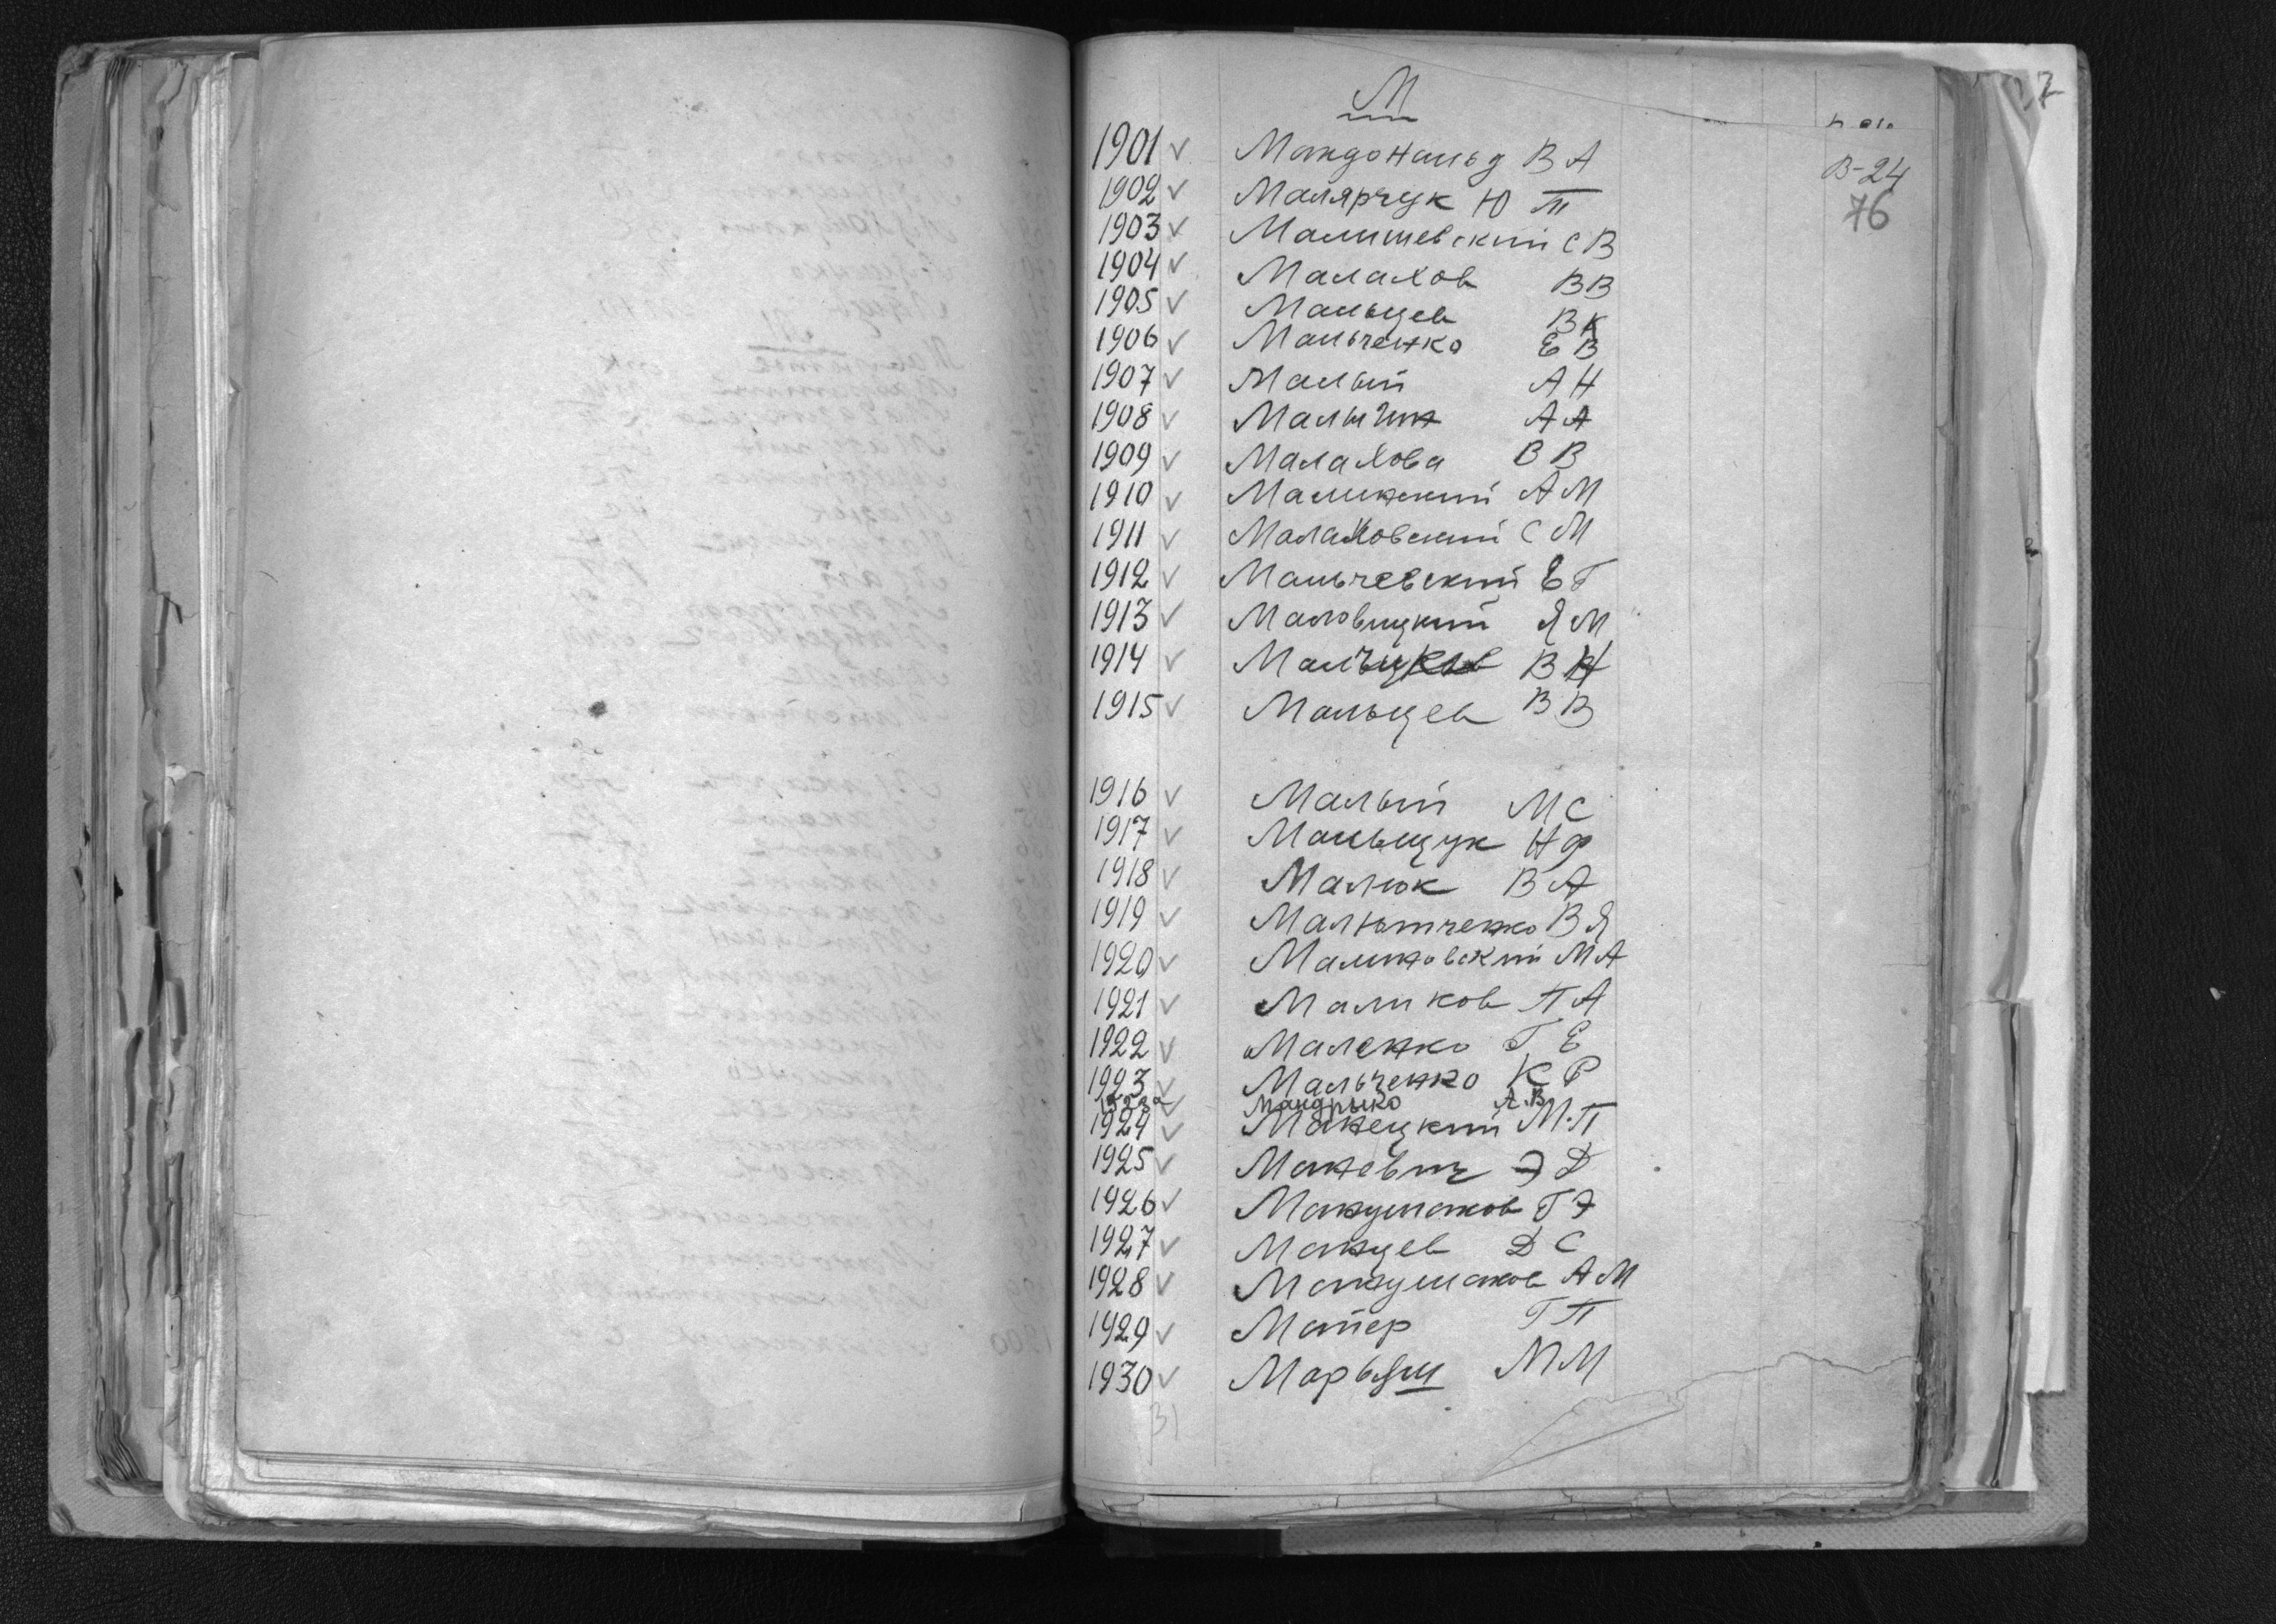 М
1901 ✓ Макдональд В А
В-24
1902 ✓ Малярчук Ю Т
76
1903 ✓ Малишевский С В
1904 ✓ Малахов В В
1905 ✓ Мальцев В К
1906 ✓ Мальченко Е В
1907 ✓ Малый А Н
1908 ✓ Малыгин А А
1909 ✓ Малахова В В
1910 ✓ Малинский А М
1911 ✓ Малаховский С М
1912 ✓ Мальчевский Е Г
1913 ✓ Маловицкий Я М
1914 ✓ В Н
1915 ✓ Мальцев В В
1916 ✓ Малый М С
1917 ✓ Мальщук Н Ф
1918 ✓ Малюк В А
1919 ✓ Малютченко В Я
1920 ✓ Малиновский М А
1921 ✓ Маликов П А
1922 ✓ Маленко Г Е
1923 ✓ Мальченко К Р
1923а ✓ Мандрыко А.В
1924 ✓ Манецкий М.П
1925 ✓ Маневич Э Д
1926 ✓ Манушаков Г Э
1927 ✓ Манцев Д С
1928 ✓ Манушаков А М
1929 ✓ Г П
1930 ✓ М М
31